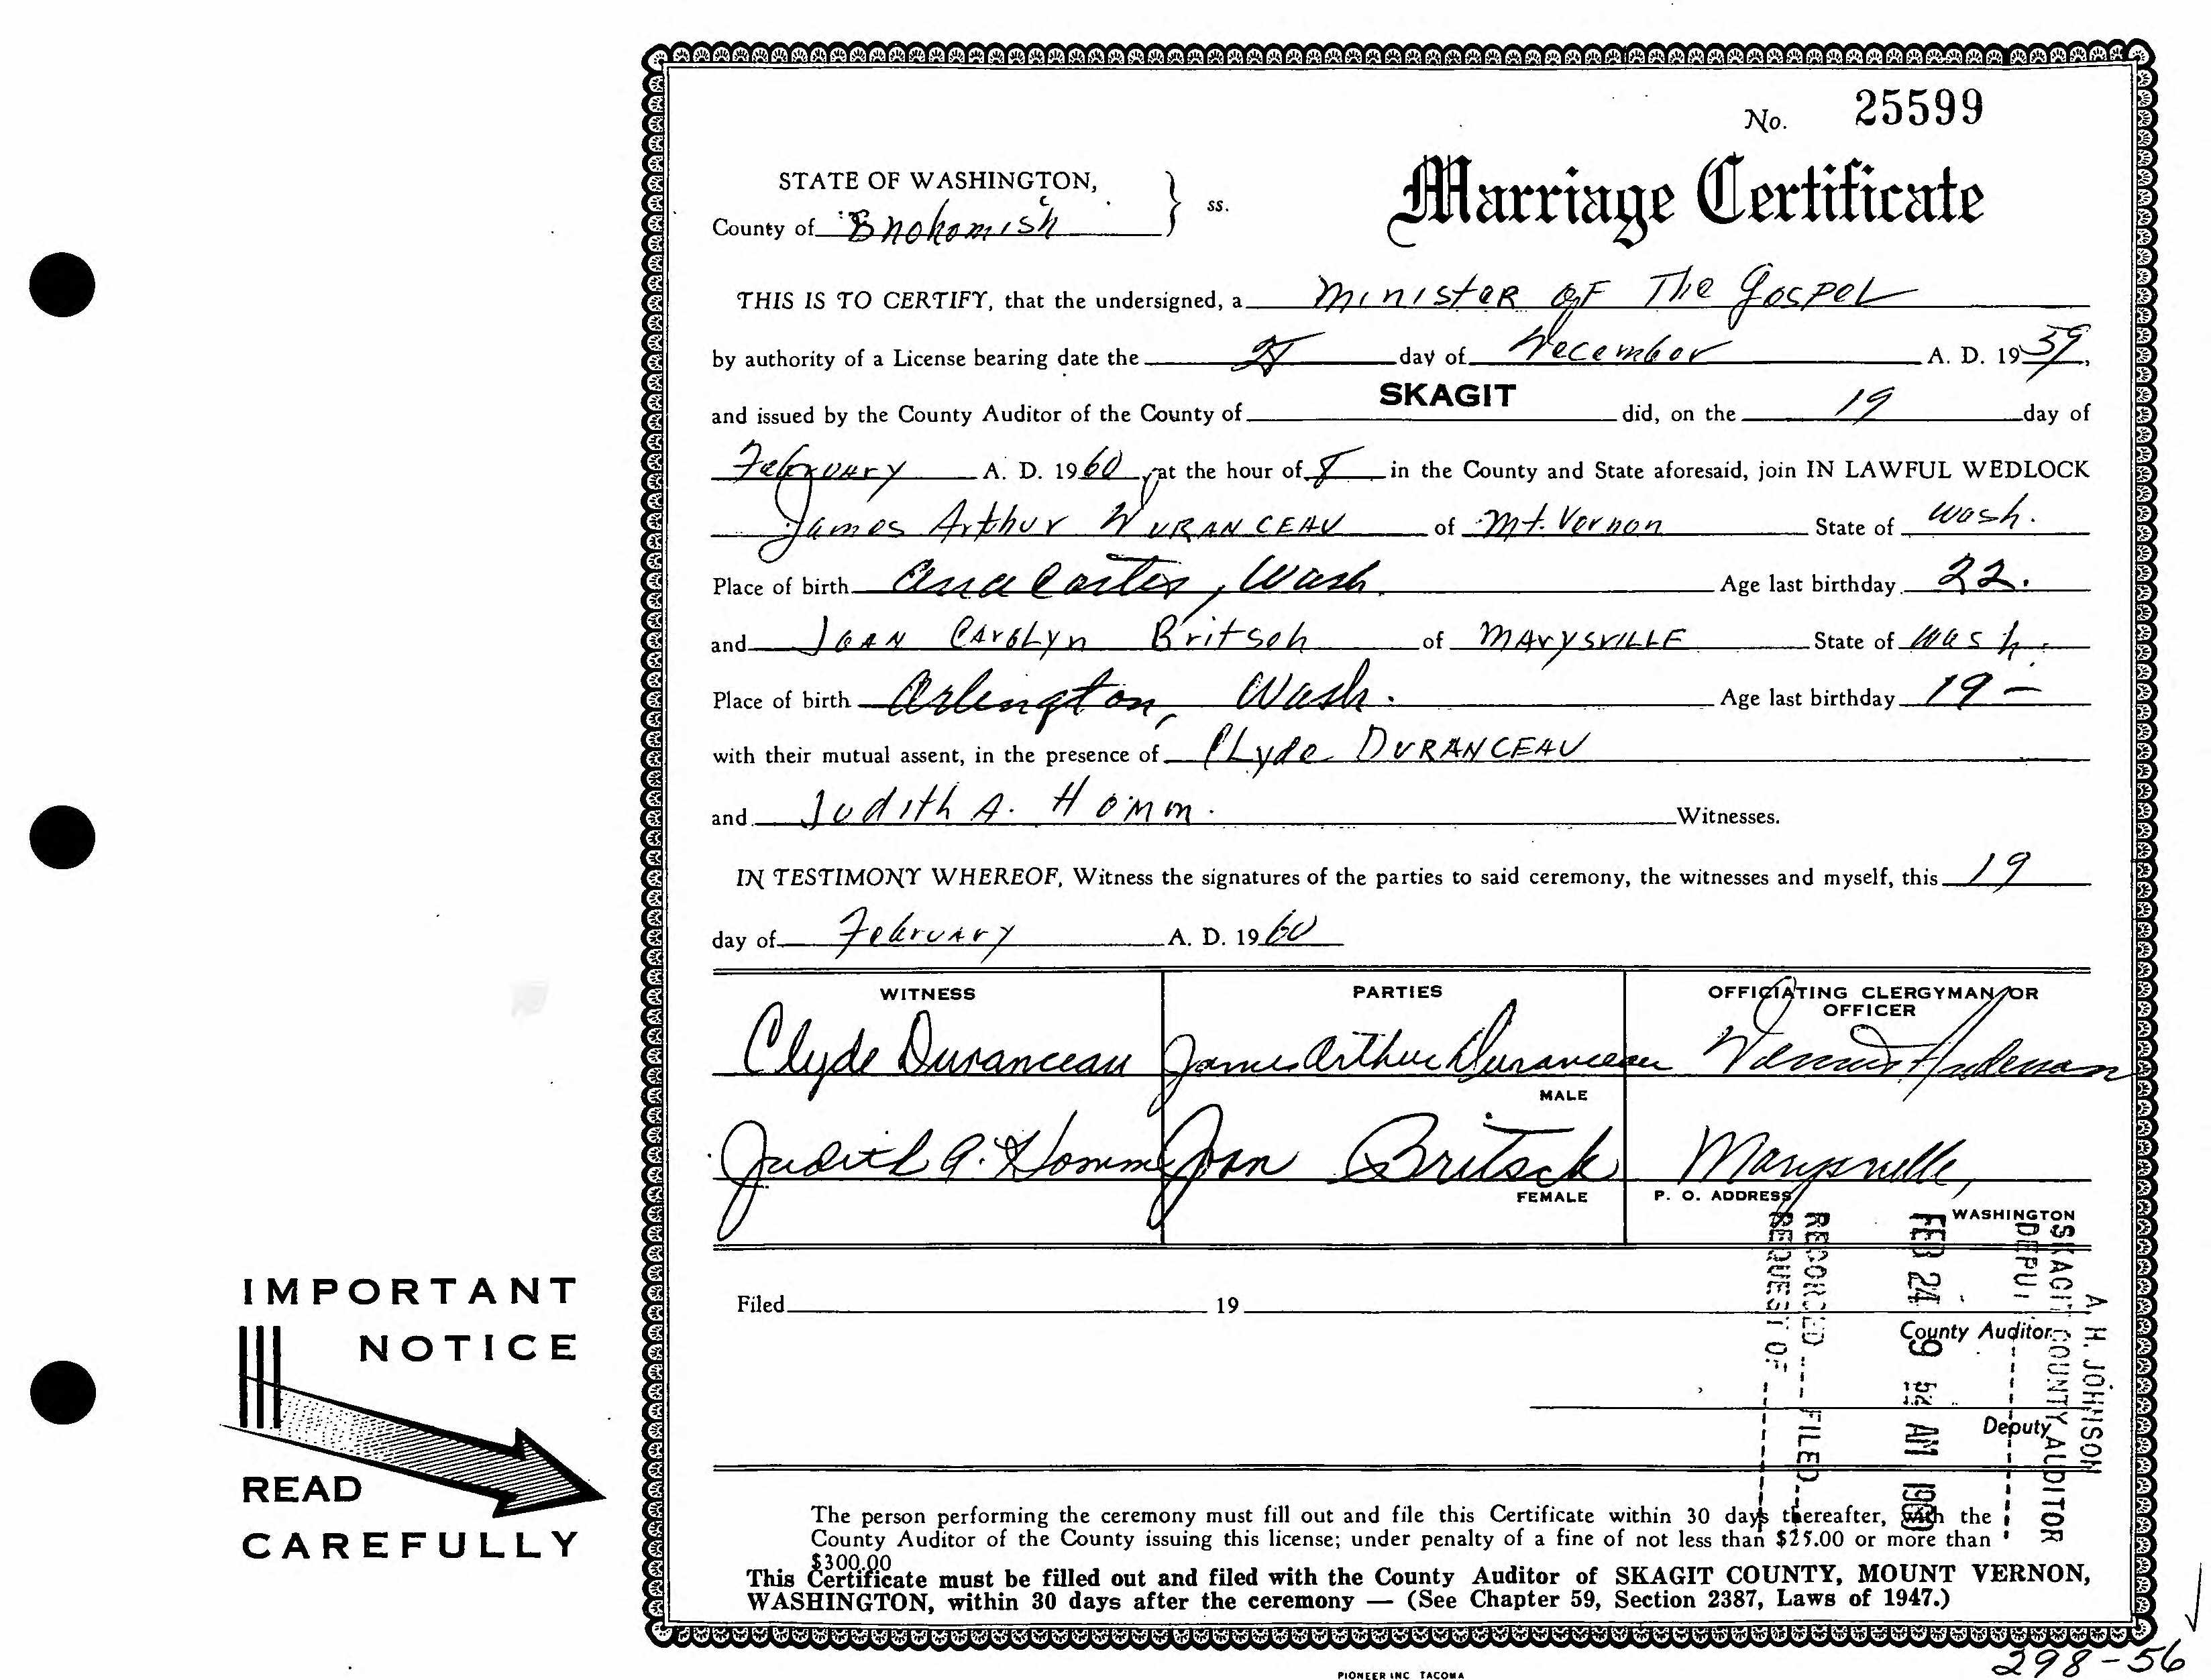 No. 25599
STATE OF WASHINGTON, } ss.
Marriage Certificate
County of Snohomish
THIS IS TO CERTIFY, that the undersigned, a Minister OF The Gospel
by authority of a License bearing date the day of December A. D. 19 59,
and issued by the County Auditor of the County of SKAGIT did, on the 19 day of
February A. D. 19 60 at the hour of 8 in the County and State aforesaid, join IN LAWFUL WEDLOCK
James Arthur DURANCEAU of Mt. Vernon State of Wash.
Place of birth Anacortes, Wash. Age last birthday 22.
and JOAN CArOLyn Britsch of MArYSVILLE State of Wash.
Place of birth Arlington, Wash. Age last birthday 19 –
with their mutual assent, in the presence of CLyde DURANCEAU
and Judith A. Homm. Witnesses.
IN TESTIMONY WHEREOF, Witness the signatures of the parties to said ceremony, the witnesses and myself, this 19
day of February A. D. 19 60
WITNESS PARTIES OFFICIATING CLERGYMAN OR
OFFICER
Clyde Duranceau James Arthur Duranceau
MALE
Judith A. Homme Joan Britsch Marysville,
FEMALE P. O. ADDRESS
WASHINGTON
Filed 19
County Auditor
Deputy
A. H. JOHNSON
SKAGIT COUNTY AUDITOR
DEPUTY
FEB 24 9 54 AM 1960
RECORDED FILED
REQUEST OF
IMPORTANT
NOTICE
READ
CAREFULLY
The person performing the ceremony must fill out and file this Certificate within 30 days thereafter, with the
County Auditor of the County issuing this license; under penalty of a fine of not less than $25.00 or more than
$300.00
This Certificate must be filled out and filed with the County Auditor of SKAGIT COUNTY, MOUNT VERNON,
WASHINGTON, within 30 days after the ceremony — (See Chapter 59, Section 2387, Laws of 1947.)
298-56
PIONEER INC TACOMA